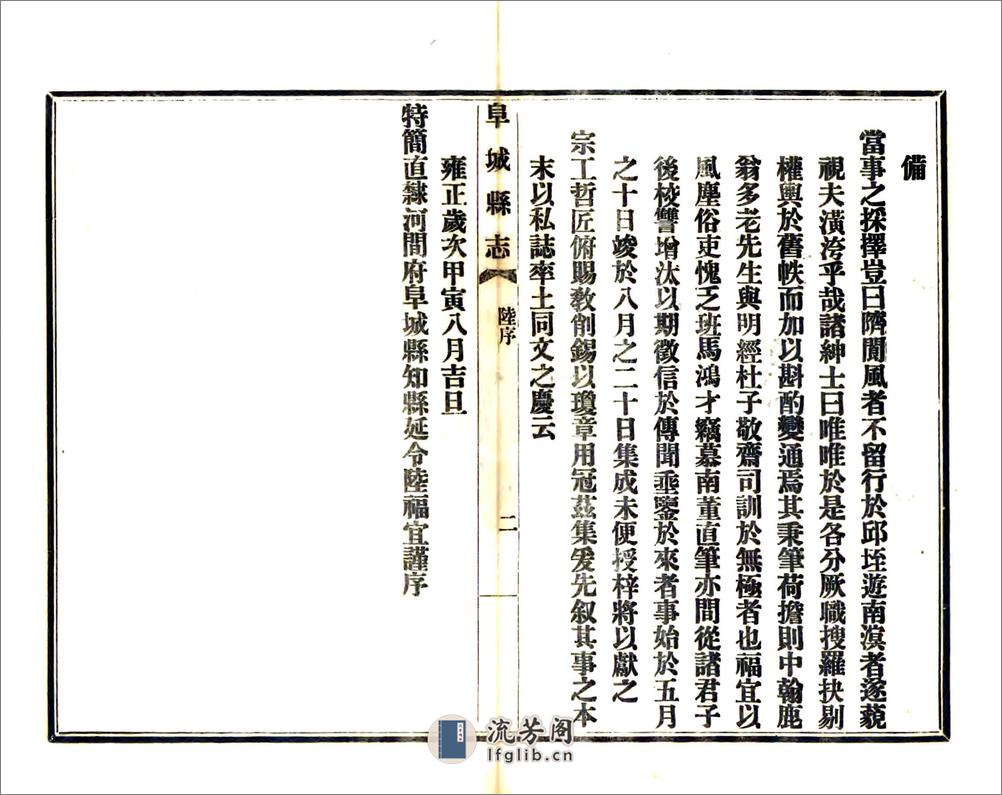 備
當事之採擇豈曰隮閬風者不留行於邱垤遊南溟者遂藐
視夫潢洿乎哉諸紳士曰唯唯於是各分厥職搜羅抉剔
權輿於舊帙而加以斟酌變通焉其秉筆荷擔則中翰鹿
翁多老先生與明經杜子敬齋司訓於無極者也福宜以
風塵俗吏愧乏班馬鴻才竊慕南董直筆亦間從諸君子
後校讐增汰以期徵信於傳聞垂鑒於來者事始於五月
之十日竣於八月之二十日集成未便授梓將以獻之
宗工哲匠俯賜教削錫以瓊章用冠茲集爰先叙其事之本
末以私誌率土同文之慶云
阜城縣志
陸序
二
雍正歲次甲寅八月吉旦
特簡直隸河間府阜城縣知縣延令陸福宜謹序
流芳阁
lfglib.cn